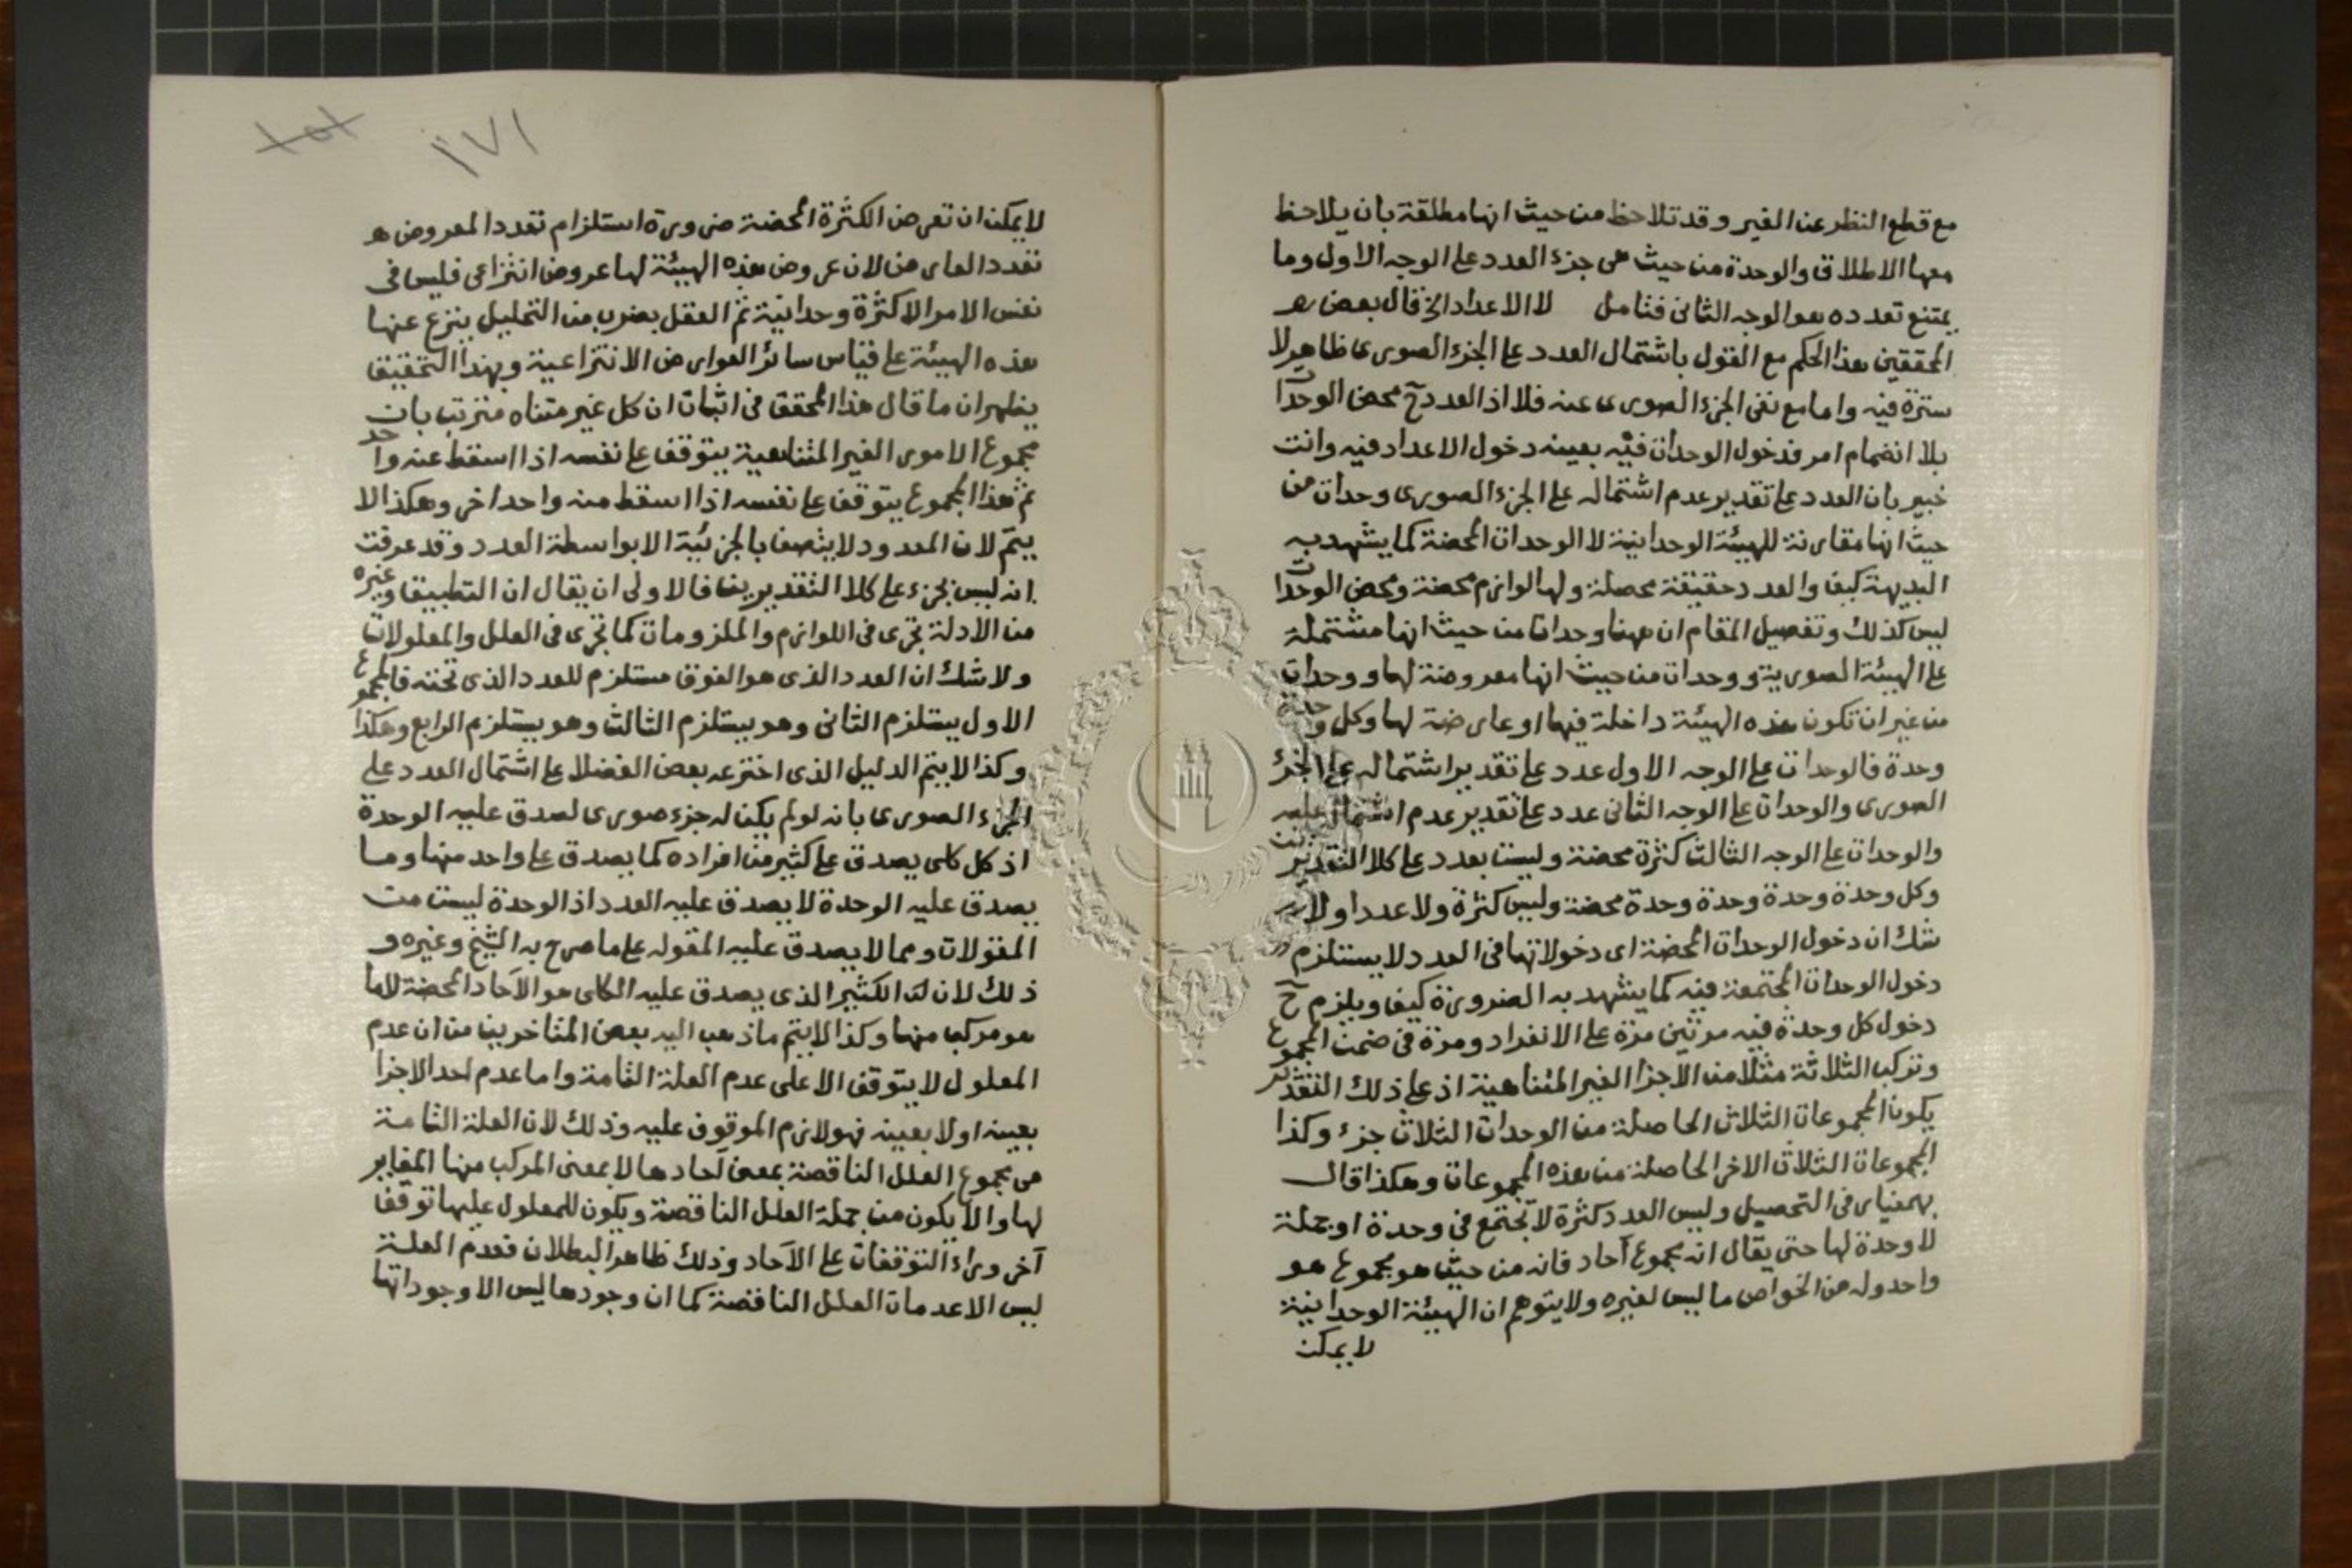 مع قطع النظر عن الغير وقد تلاحظ من حيث انها مطلقة بان يلاحظ
معها الاطلاق والوحدة من حيث هي جزء العدد على الوجه الاول وما
يمتنع تعدده هو الوجه الثاني فتامل لا الاعداد الخ قال بعض
المحققين هذا الحكم مع القول باشتمال العدد على الجزء الصوري ظاهر لا
سترة فيه واما مع نفي الجزء الصوري عنه فلا اذ العدد ح محض الوحدات
بلا انضمام امر فدخول الوحدات فيه بعينه دخول الاعداد فيه وانت
خبير بان العدد على تقدير عدم اشتماله على الجزء الصوري وحدات من
حيث انها مقارنة للهيئة الوحدانية لا الوحدات المحضة كما يشهد به
البديهة كيف والعدد حقيقة محصلة ولها لوازم محضة ومحض الوحدات
ليس كذلك وتفصيل المقام ان ههنا وحدات من حيث انها مشتملة
على الهيئة الصورية ووحدات من حيث انها معروضة لها ووحدات
من غير ان تكون هذه الهيئة داخلة فيها او عارضة لها وكل وحدة
وحدة فالوحدات على الوجه الاول عدد على تقدير اشتماله على الجزء
الصوري والوحدات على الوجه الثاني عدد على تقدير عدم اشتماله عليه
والوحدات على الوجه الثالث كثرة محضة وليست بعدد على كلا التقديرين
وكل وحدة وحدة وحدة وحدة محضة وليس كثرة ولا عددا ولا
شك ان دخول الوحدات المحضة اي دخولاتها في العدد لا يستلزم
دخول الوحدات المجتمعة فيه كما يشهد به الضرورة كيف ويلزم ح
دخول كل وحدة فيه مرتين مرة على الانفراد ومرة في ضمن المجموع
وتركب الثلاثة مثلا من الاجزا الغير المتناهية اذ على ذلك التقدير
يكون المجموعات الثلاث الحاصلة من الوحدات الثلاث جزء وكذا
المجموعات الثلاث الاخر الحاصلة من هذه المجموعات وهكذا قال
بهمنيار في التحصيل وليس العدد كثرة لا تجتمع في وحدة او جملة
لا وحدة لها حتى يقال انه مجموع آحاد فانه من حيث هو مجموع هو
واحد وله من الخواص ما ليس لغيره ولا يتوهم ان الهيئة الوحدانية
لا يمكن
١٧١
١٥١
لا يمكن ان تعرض الكثرة المحضة ضرورة استلزام تعدد المعروض
تعدد العارض لان عروض هذه الهيئة لها عروض انتزاعي فليس في
نفس الامر الا كثرة وحدانية ثم العقل بضرب من التحليل ينزع عنها
هذه الهيئة على قياس سائر العوارض الانتزاعية وبهذا التحقيق
يظهر ان ما قال هذا المحقق في اثبات ان كل غير متناه مترتب بان
مجموع الامور الغير المتناهية يتوقف على نفسه اذا اسقط عنه واحد
ثم هذا المجموع يتوقف على نفسه اذا اسقط منه واحد اخر وهكذا لا
يتم لان المعدود لا يتصف بالجزئية الا بواسطة العدد وقد عرفت
انه ليس بجزء على كلا التقديرين فالاولى ان يقال ان التطبيق وغيره
من الادلة تجري في اللوازم والملزومات كما تجري في العلل والمعلولات
ولا شك ان العدد الذي هو الفوق مستلزم للعدد الذي تحته فالمجموع
الاول يستلزم الثاني وهو يستلزم الثالث وهو يستلزم الرابع وهكذا
وكذا لا يتم الدليل الذي اخترعه بعض الفضلا على اشتمال العدد على
الجزء الصوري بانه لو لم يكن له جزء صوري لصدق عليه الوحدة
اذ كل كلي يصدق على كثير من افراده كما يصدق على واحد منها وما
يصدق عليه الوحدة لا يصدق عليه العدد اذ الوحدة ليست من
المقولات ومما لا يصدق عليه المقوله على ما صرح به الشيخ وغيره و
ذلك لان الكثير الذي يصدق عليه الكلي هو الآحاد المحضة لا ما
هو مركب منها وكذا لا يتم ما ذهب اليه بعض المتاخرين من ان عدم
المعلول لا يتوقف الا على عدم العلة التامة واما عدم احد الاجزا
بعينه او لا بعينه فهو لازم الموقوف عليه وذلك لان العلة التامة
هي مجموع العلل الناقصة بمعنى آحادها لا بمعنى المركب منها المغاير
لها والا يكون من جملة العلل الناقصة ويكون للمعلول عليها توقف
آخر وراء التوقفات على الآحاد وذلك ظاهر البطلان فعدم العلة
ليس الا عدمات العلل الناقصة كما ان وجودها ليس الا وجوداتها